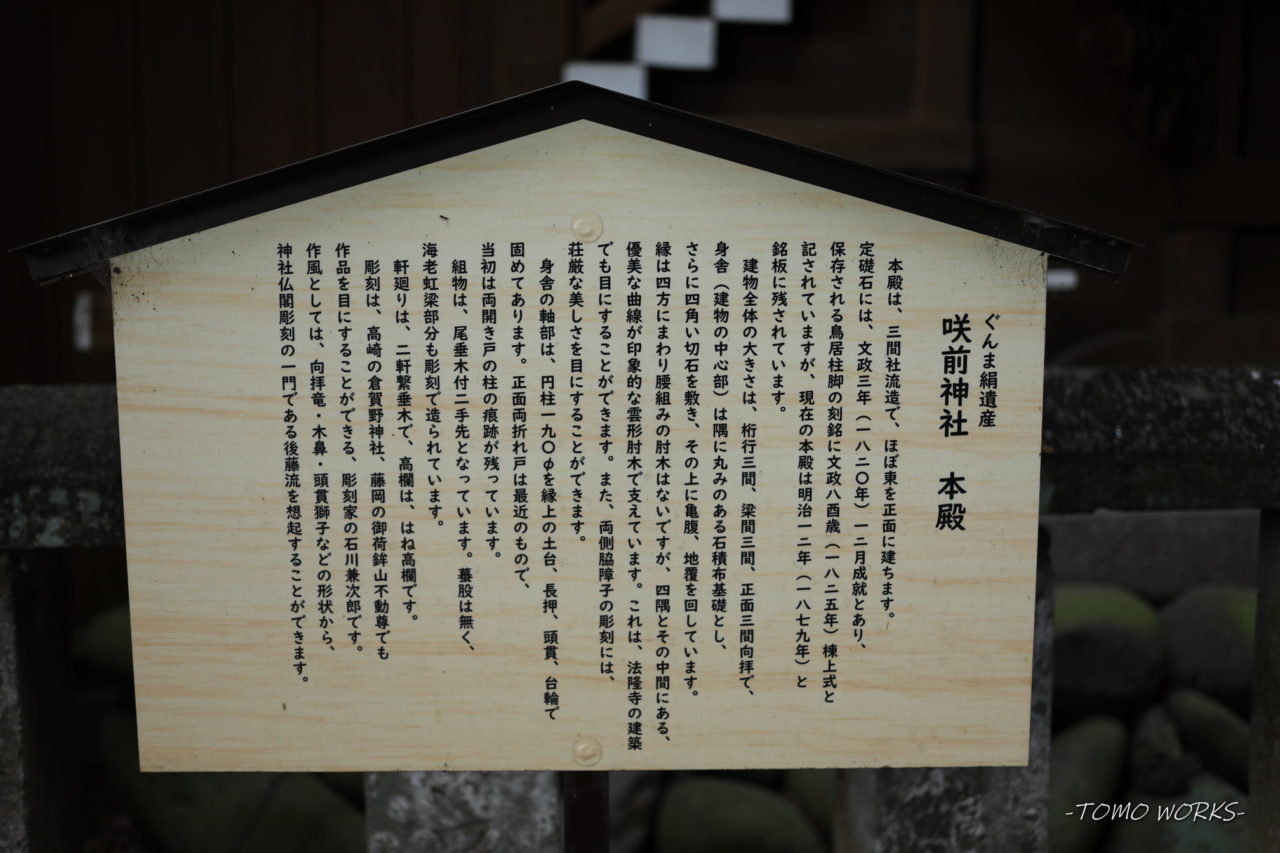 ぐんま絹遺産
咲前神社　本殿
本殿は、三間社流造で、ほぼ東を正面に建ちます。
定礎石には、文政三年（一八二〇年）一二月成就とあり、
保存される鳥居柱脚の刻銘に文政八酉歳（一八二五年）棟上式と
記されていますが、現在の本殿は明治一二年（一八七九年）と
銘板に残されています。
建物全体の大きさは、桁行三間、梁間三間、正面三間向拝で、
身舎（建物の中心部）は隅に丸みのある石積布基礎とし、
さらに四角い切石を敷き、その上に亀腹、地覆を回しています。
縁は四方にまわり腰組みの肘木はないですが、四隅とその中間にある、
優美な曲線が印象的な雲形肘木で支えています。これは、法隆寺の建築
でも目にすることができます。また、両側脇障子の彫刻には、
荘厳な美しさを目にすることができます。
身舎の軸部は、円柱一九〇φを縁上の土台、長押、頭貫、台輪で
固めてあります。正面両折れ戸は最近のもので、
当初は両開き戸の柱の痕跡が残っています。
組物は、尾垂木付二手先となっています。蟇股は無く、
海老虹梁部分も彫刻で造られています。
軒廻りは、二軒繋垂木で、高欄は、はね高欄です。
彫刻は、高崎の倉賀野神社、藤岡の御荷鉾山不動尊でも
作品を目にすることができる、彫刻家の石川兼次郎です。
作風としては、向拝竜・木鼻・頭貫獅子などの形状から、
神社仏閣彫刻の一門である後藤流を想起することができます。
-TOMO WORKS-